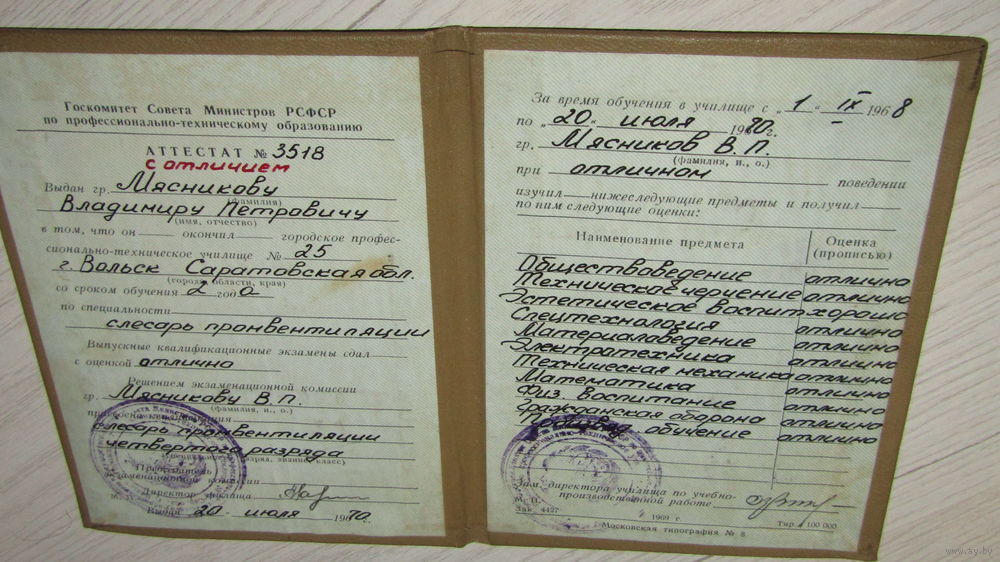 Госкомитет Совета Министров РСФСР
по профессионально-техническому образованию
АТТЕСТАТ № 3518
с отличием
Выдан гр. Мясникову
(фамилия)
Владимиру Петровичу
(имя, отчество)
в том, что он окончил городское профес-
сионально-техническое училище № 25
г. Вольск Саратовская обл.
(города, области, края)
со сроком обучения 2 года
по специальности
слесарь промвентиляции
Выпускные квалификационные экзамены сдал
с оценкой отлично
Решением экзаменационной комиссии
гр. Мясникову В.П.
(фамилия, и., о.)
присвоена квалификация
слесарь промвентиляции
четвертого разряда
Председатель
экзаменационной комиссии
Директор училища
Выдан 20 июля 1970г.
За время обучения в училище с „1“ IX 1968
по „20“ июля 1970г.
гр. Мясников В.П.
(фамилия, и., о.)
при отличном поведении
изучил нижеследующие предметы и получил
по ним следующие оценки:
Наименование предмета Оценка (прописью)
Обществоведение отлично
Техническое черчение отлично
Эстетическое воспит хорошо
Спецтехнология отлично
Материаловедение отлично
Электротехника отлично
Техническая механика отлично
Математика отлично
Физ. воспитание отлично
Гражданская оборона отлично
Производ. обучение отлично
Зам. директора училища по учебно-
производственной работе
М. П.
Зак. 4427 1969 г.
Московская типография № 8 Тир. 100 000
www.ay.by